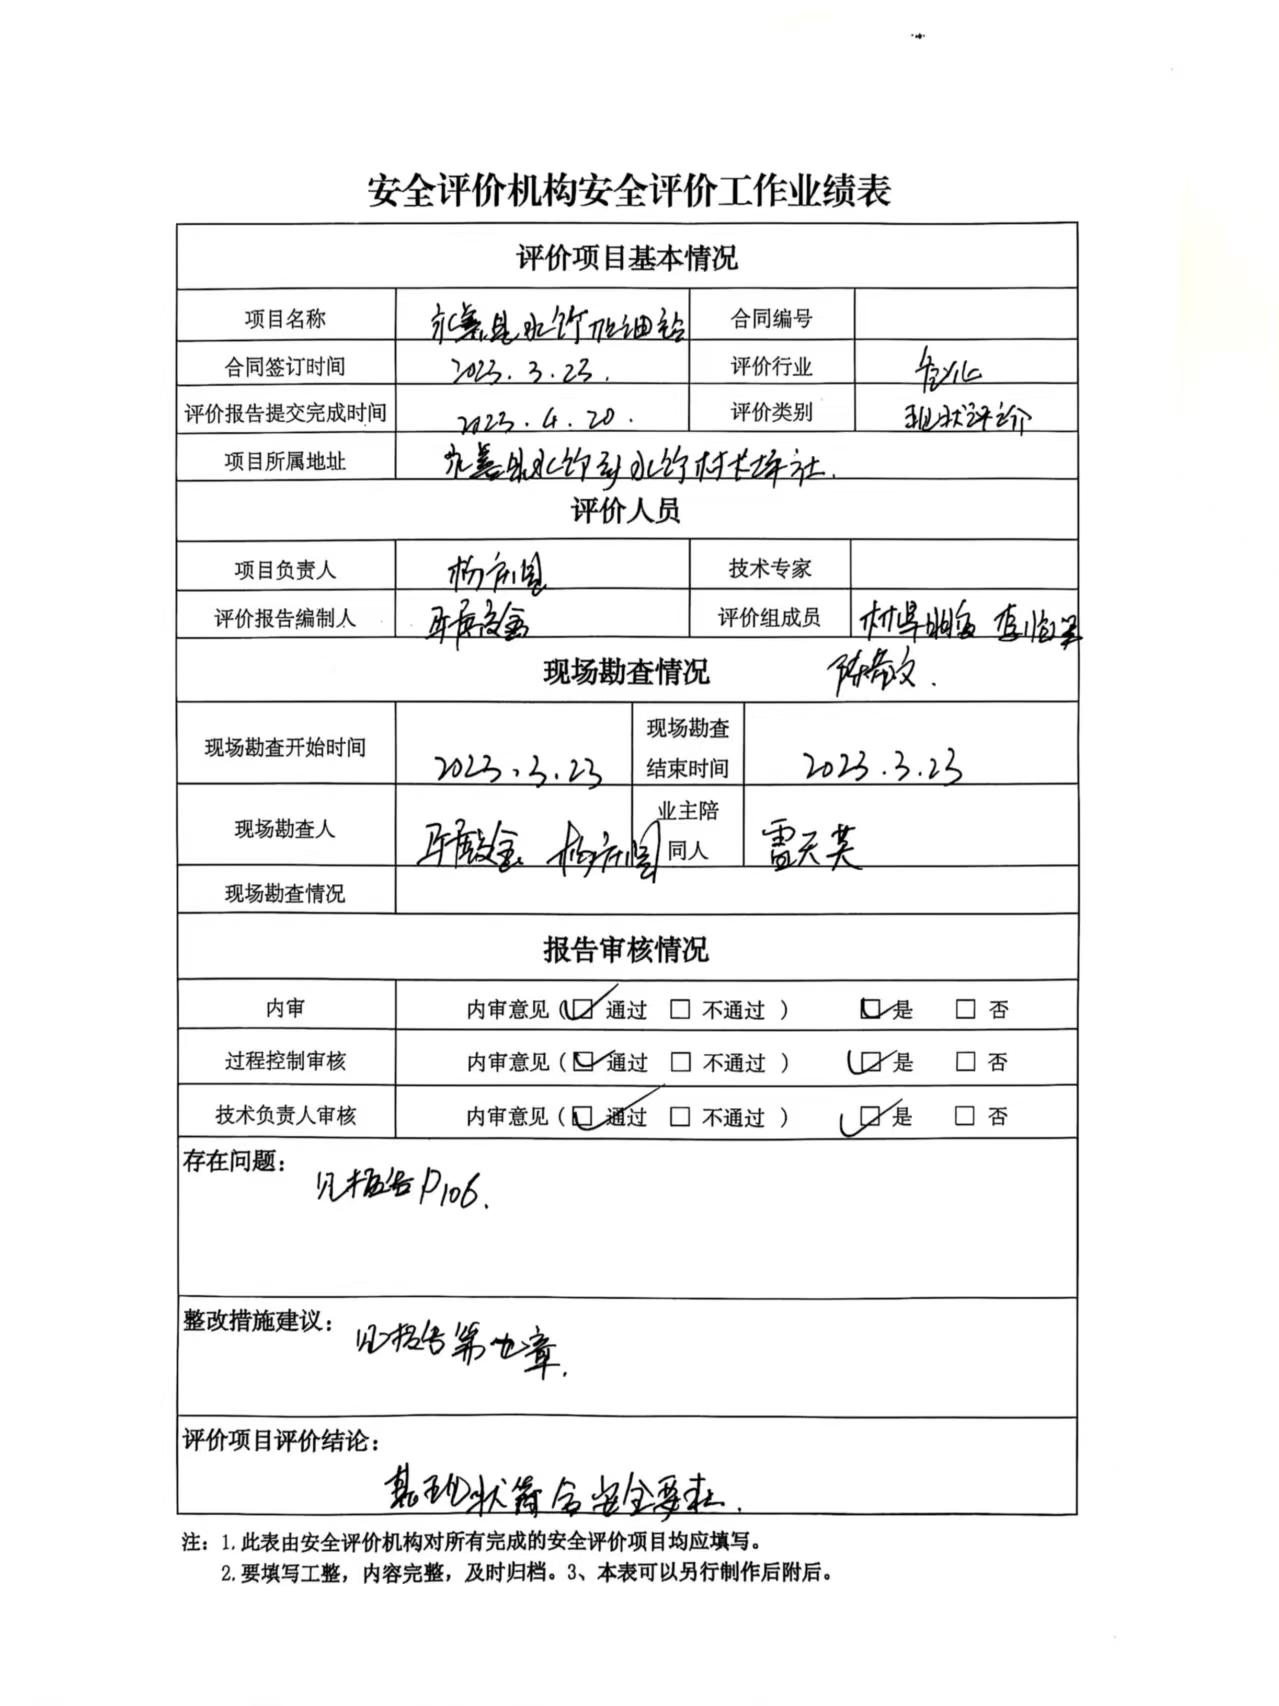 安全评价机构安全评价工作业绩表
评价项目基本情况
项目名称 永善县水竹加油站 合同编号
合同签订时间 2023.3.23. 评价行业 危化
评价报告提交完成时间 2023.4.20. 评价类别 现状评价
项目所属地址 永善县水竹乡水竹村长坪社.
评价人员
项目负责人 杨 技术专家
评价报告编制人 评价组成员 李
现场勘查情况 陈
现场勘查开始时间 2023.3.23 现场勘查 结束时间 2023.3.23
现场勘查人 杨 业主陪 同人 雷天英
现场勘查情况
报告审核情况
内审 内审意见（☑ 通过 □ 不通过 ） ☑ 是 □ 否
过程控制审核 内审意见（☑ 通过 □ 不通过 ） ☑ 是 □ 否
技术负责人审核 内审意见（☑ 通过 □ 不通过 ） ☑ 是 □ 否
存在问题： 见报告P106.
整改措施建议： 见报告第七章.
评价项目评价结论：
其现状符合安全要求.
注：1.此表由安全评价机构对所有完成的安全评价项目均应填写。
2.要填写工整，内容完整，及时归档。3、本表可以另行制作后附后。